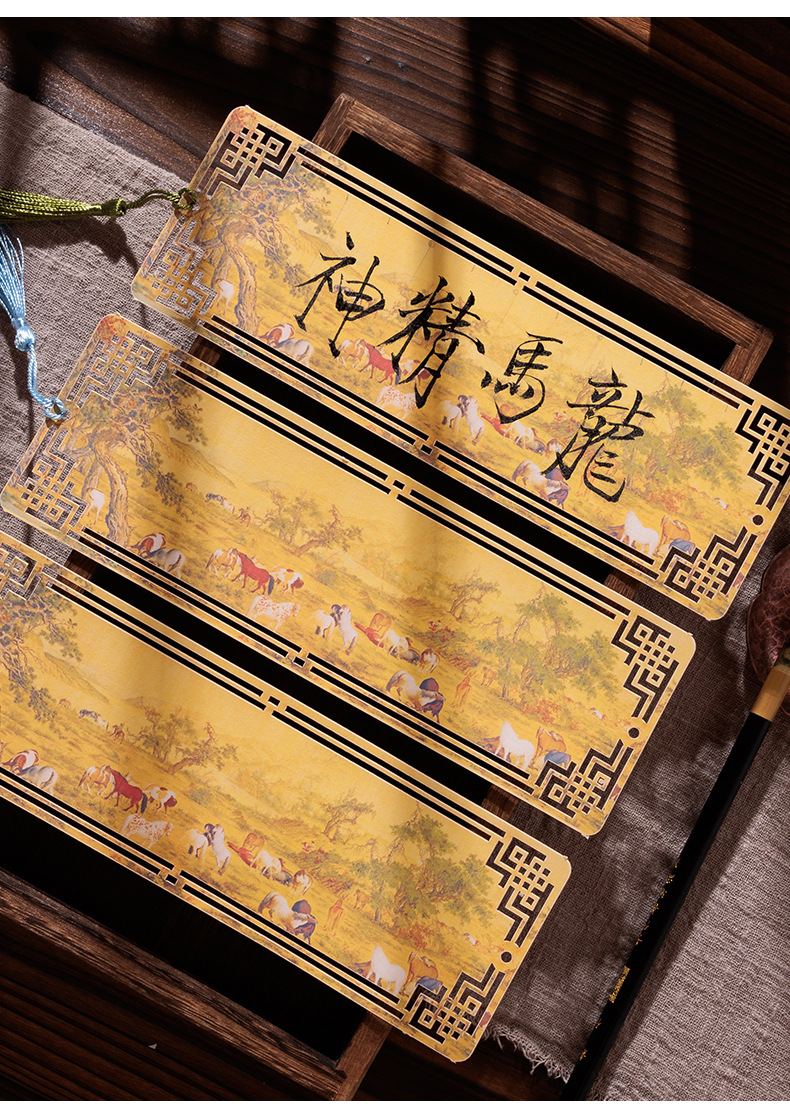 龍馬精神